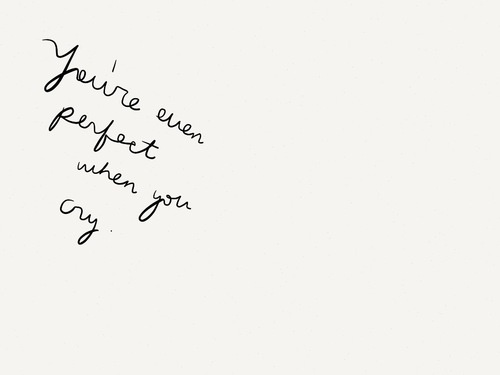 You're even
perfect
when you
cry.